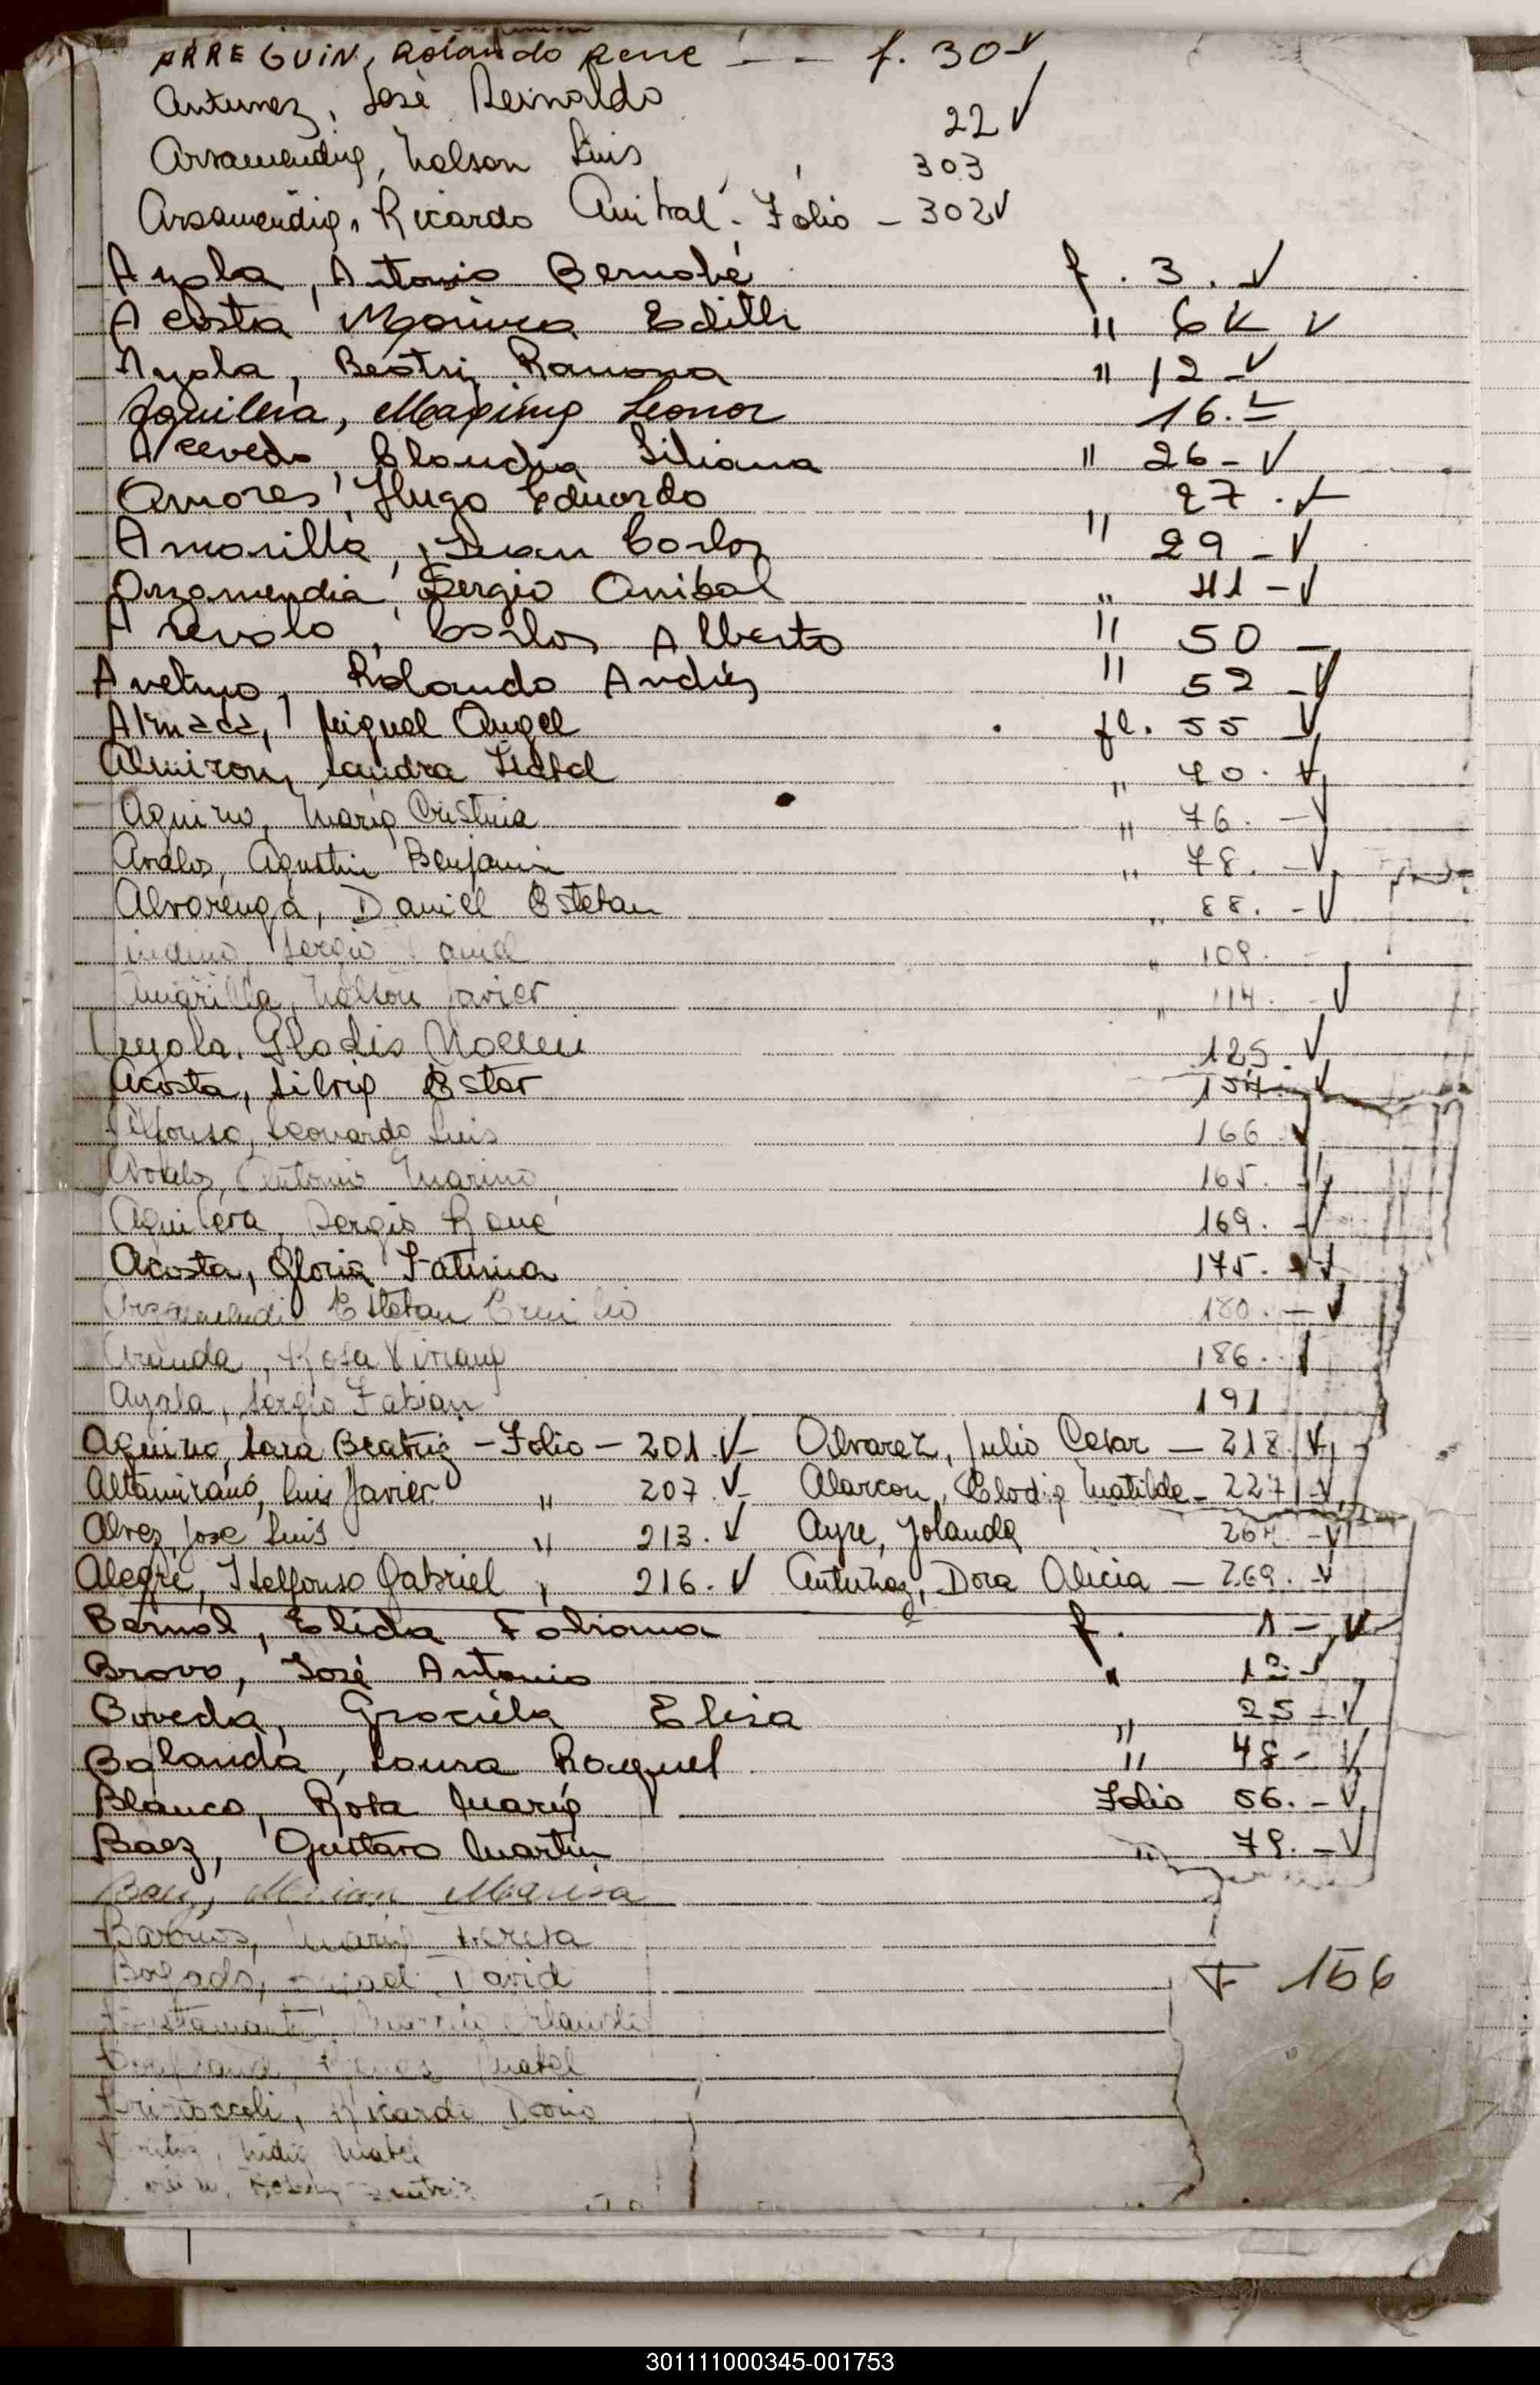 ARREGUIN, Rolando Rene - - f. 30 ✓
Antunez, José Reinaldo 22 ✓
Arsamendia, Nelson Luis 303
Arsamendia, Ricardo Anibal - Folio - 302 ✓
Ayala, Antonio Bernabé f. 3. ✓
Acosta Monica Edith " 6 ✓
Ayala, Beatriz Ramona " 12 - ✓
Aguilera, Maxima Leonor 16. ✓
Acevedo, Claudia Liliana " 26 - ✓
Amores, Hugo Eduardo " 27. ✓
Amarilla, Juan Carlos " 29 - ✓
Arzamendia, Sergio Anibal " 41 - ✓
Arevalo, Carlos Alberto " 50 -
Avelino, Rolando Andrés " 52 - ✓
Almada, Miguel Angel fl. 55 ✓
Almiron, Sandra Isabel " 70. ✓
Aquino, Maria Cristina " 76. - ✓
Avalos, Agustin Benjamin " 78. - ✓
Alvarenga, Daniel Esteban " 88. - ✓
Sergio " 109. -
Amarilla, Nelson Javier " 114. - ✓
Ayala. Gladis Noemi 125 ✓
Acosta, Silvia Ester 154. ✓
Alfonso, Leonardo Luis 166 ✓
Avalos, Antonio Marino 165. ✓
Aguilera, Sergio René 169. - ✓
Acosta, Gloria Fatima 175. ✓
Arzamendia Esteban Emilio 180. - ✓
Aranda, Rosa Viviana 186.
Ayala, Sergio Fabian 191
Aquino, Sara Beatriz - Folio - 201. ✓ - Alvarez, Julio Cesar - 218 ✓
Altamirano, Luis Javier " 207. ✓ - Alarcon, Elodia Matilde - 227 - ✓
Alvez, Jose Luis " 213. ✓ Ayre, Yolanda 264. - ✓
Alegre, Ildefonso Gabriel " 216. ✓ Antunez, Dora Alicia - 269. - ✓
Bernal, Elida Fabiana f. 1 - ✓
Bravo, José Antonio " 12 - ✓
Boveda, Graciela Elisa " 25 - ✓
Balanda, Laura Raquel " 48 - ✓
Blanco, Rosa Maria Folio 56. - ✓
Baez, Gustavo Martin " 79. - ✓
Baez, Miriam Marisa
Barrios, Maria Teresa
Bogado, David F 156
Orlando
Mabel
Ricardo
Nidia Mabel
Beatriz
301111000345-001753